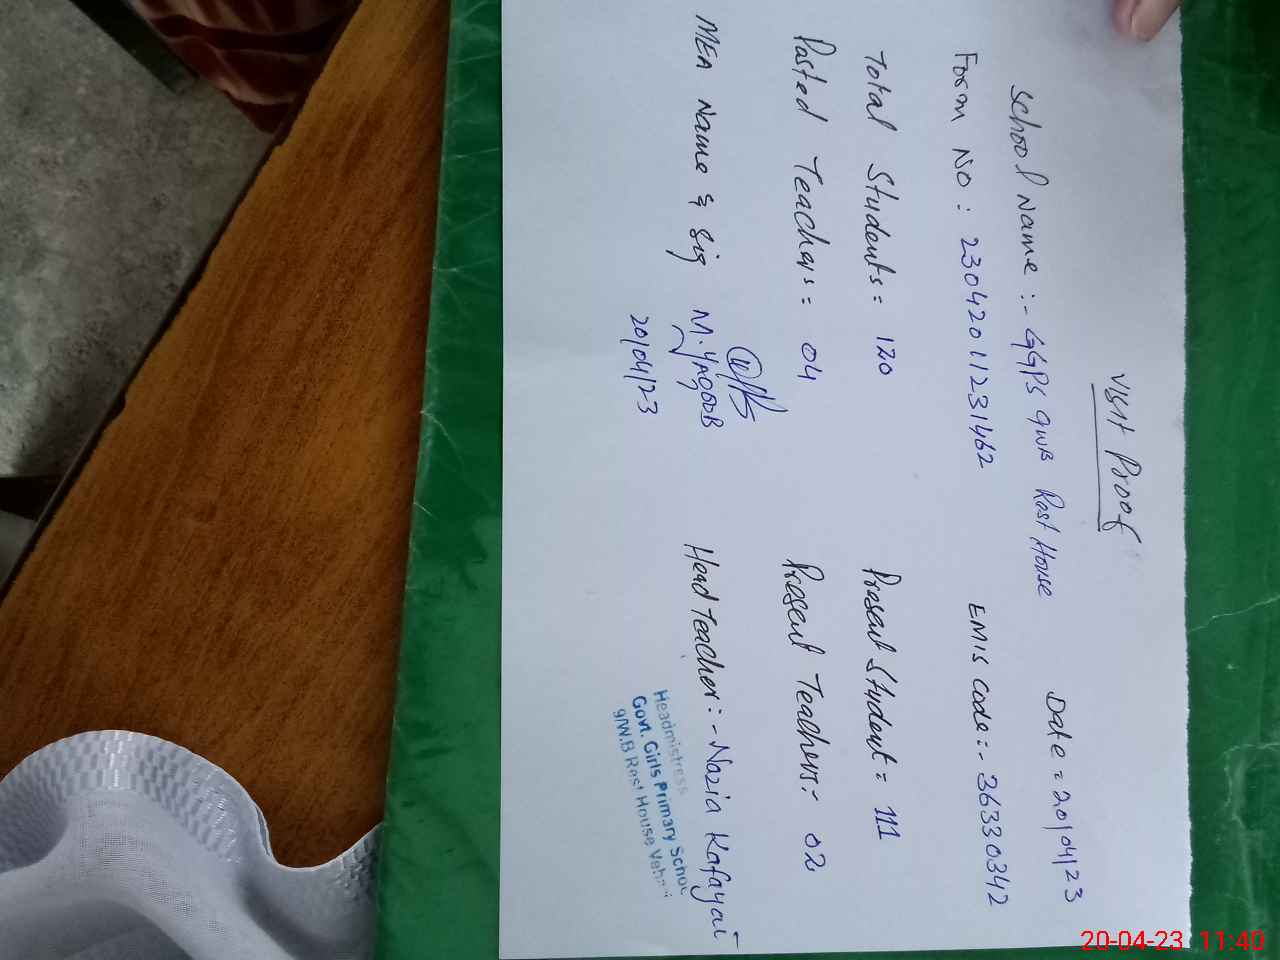 Visit Proof
School Name :- GGPS 9WB Rest House Date = 20/04/23
Form No : 23042011231462 EMIS Code:- 36330342
Total Students = 120 Present Student = 111
Posted Teachers = 04 Present Teachers:- 02
MEA Name & Sig M. YAQOOB Head Teacher:- Nazia Kafayat
20/04/23
Headmistress
Govt. Girls Primary School
9/W.B Rest House Vehari
20-04-23 11:40